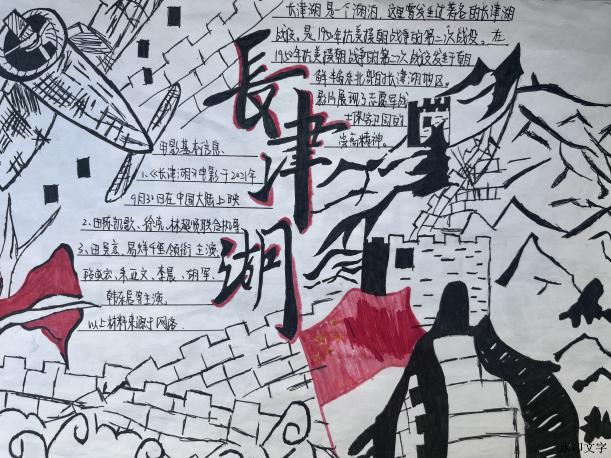 长津湖是一个湖泊,这里曾发生过著名的长津湖
战役。是1950年抗美援朝战争的第二次战役。在
1950年抗美援朝战争的第二次战役发生于朝
鲜半岛东北部的长津湖地区。
影片展现了志愿军战
士保家卫国的
崇高精神。
長津湖
电影基本信息
1.《长津湖》电影于2021年
9月30日在中国大陆上映
2、由陈凯歌、徐克、林超贤联合执导
3、由吴京、易烊千玺领衔主演
段奕宏、朱亚文、李晨、胡军、
韩东君等主演。
以上材料来源于网络.
水印文字